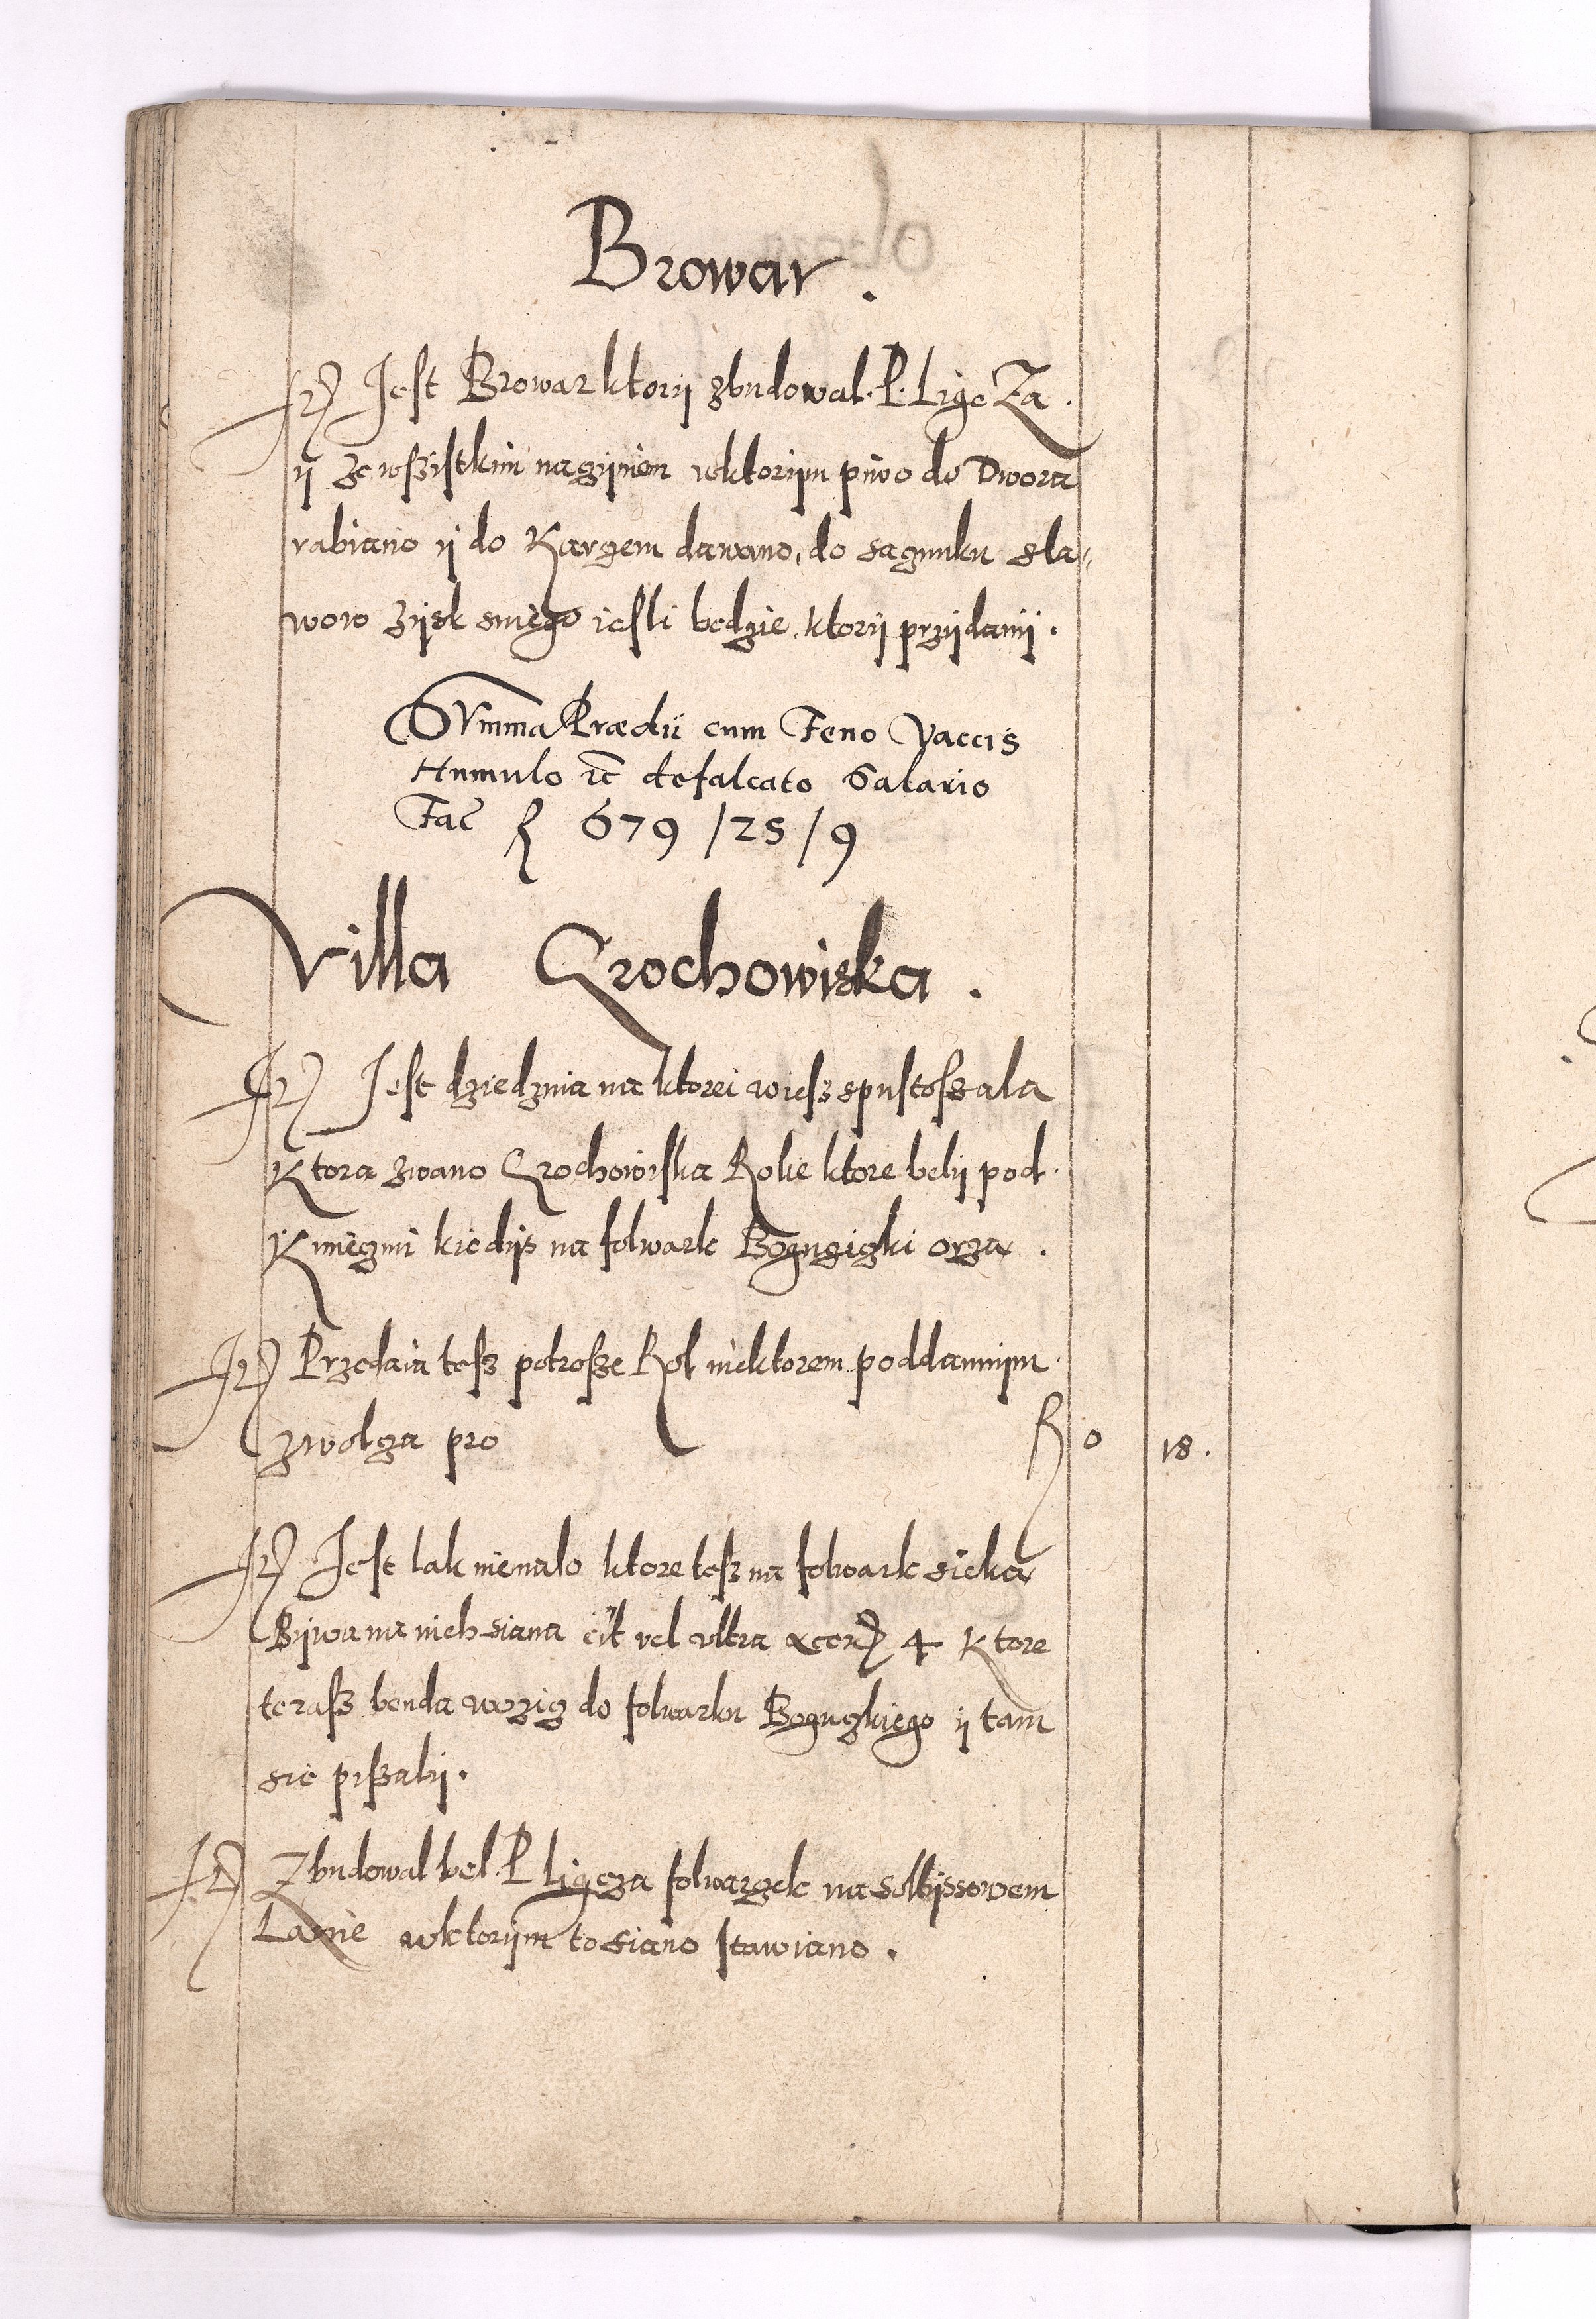 Browar.
Jtem Jest Browar ktorÿ zbudowal. P. LigeZa.
ÿ ze wszistkim naczÿniem wktorijm piwo do Dwora
rabiano ÿ do Karczem dawano, do saczunku sta-
wow zÿsk snięgo iesli bedzie, ktorÿ przÿdamÿ.
SVmma Prædii cum Feno Vaccis
Humulo etc defalcato Salario
Fac fl 679 / 25 / 9
Villa Grochowiska.
Jtem Jest dziedzina na ktorei wiesz spustoszala
Ktora zwano Grochowiska Rolie ktore belÿ pod.
Kmieczmi kiedÿs na folwark Boguczizki orza.
Jtem Przedaia tesz potrosze Rol niektorem poddannijm.
zwolcza pro fl 0 18.
Jtem Jest lak niemalo ktore tesz na folwark sieka
Bijwa na nich siana cit vel vltra acer 4 Ktore
terasz benda wozicz do folwarku Boguczkiego ÿ tam
sie piszalÿ.
Jtem Zbudowal bel. P ligęza folwarczek na soltijssowem
Lanie wktorijm to siano stawiano.